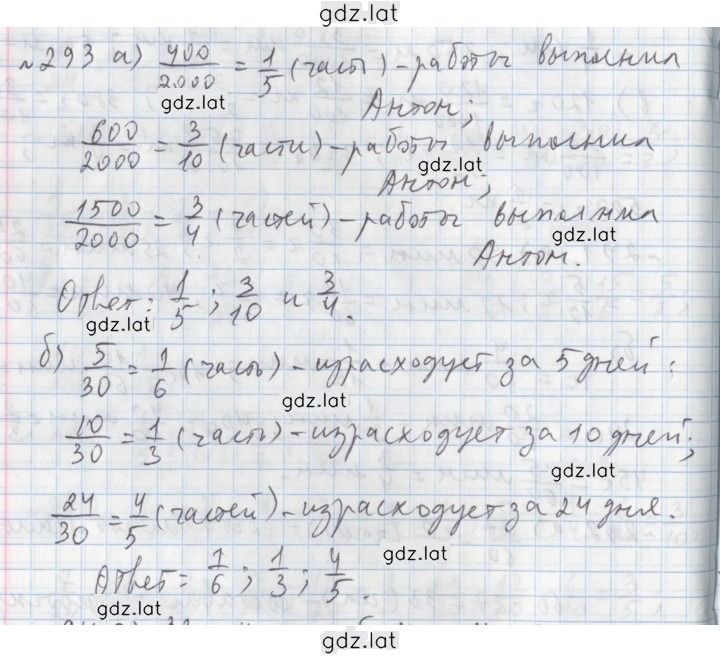 gdz.lat
№293 а) 400/2000 = 1/5 (часть) - работы выполнил
gdz.lat
Антон;
600/2000 = 3/10 (части) - работы выполнил
gdz.lat
Антон;
1500/2000 = 3/4 (частей) - работы выполнил
gdz.lat
Антон.
Ответ: 1/5; 3/10 и 3/4.
gdz.lat
б) 5/30 = 1/6 (часть) - израсходует за 5 дней;
gdz.lat
10/30 = 1/3 (часть) - израсходует за 10 дней;
gdz.lat
24/30 = 4/5 (частей) - израсходует за 24 дня.
gdz.lat
Ответ: 1/6; 1/3; 4/5.
gdz.lat
gdz.lat